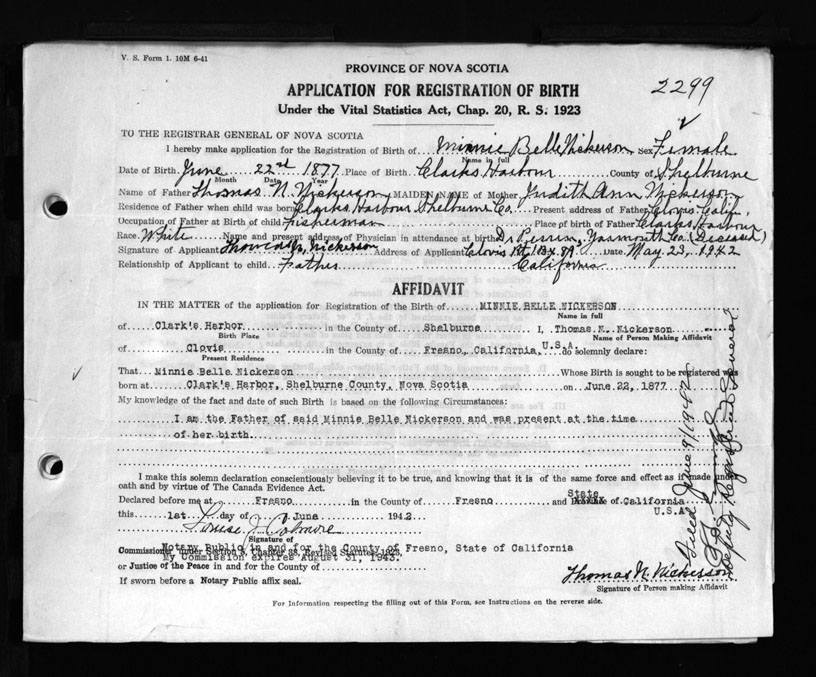 V. S. Form 1. 10M 6-41
PROVINCE OF NOVA SCOTIA
2299
APPLICATION FOR REGISTRATION OF BIRTH
Under the Vital Statistics Act, Chap. 20, R. S. 1923
TO THE REGISTRAR GENERAL OF NOVA SCOTIA
I hereby make application for the Registration of Birth of Minnie Belle Nickerson Sex Female
Name in full
Date of Birth June 22nd 1877 Place of Birth Clarks Harbour County of Shelburne
Month Date Year
Name of Father Thomas N. Nickerson MAIDEN NAME of Mother Judith Ann Nickerson
Residence of Father when child was born Clarks Harbour Shelburne Co. Present address of Father Clovis Calif.
Occupation of Father at Birth of child Fisherman Place of birth of Father Clarks Harbour
Race White Name and present address of Physician in attendance at birth Dr. Yarmouth Co. (Deceased)
Signature of Applicant Thomas N. Nickerson Address of Applicant Clovis Rt. 1 Bx 89 Date May 23, 1942
Relationship of Applicant to child Father California
AFFIDAVIT
IN THE MATTER of the application for Registration of the Birth of MINNIE BELLE NICKERSON
Name in full
of Clark's Harbor in the County of Shelburne I, Thomas N. Nickerson
Birth Place Name of Person Making Affidavit
of Clovis in the County of Fresno, California, U.S.A. do solemnly declare:
Present Residence
That Minnie Belle Nickerson Whose Birth is sought to be registered was
born at Clark's Harbor, Shelburne County, Nova Scotia on June 22, 1877
My knowledge of the fact and date of such Birth is based on the following Circumstances:
I am the Father of said Minnie Belle Nickerson and was present at the time
of her birth.
I make this solemn declaration conscientiously believing it to be true, and knowing that it is of the same force and effect as if made under
oath and by virtue of The Canada Evidence Act.
Declared before me at Fresno in the County of Fresno and State of California
this 1st day of June 1942 U.S.A.
Signature of
Notary Public in and for the County of Fresno, State of California
Commissioner under Section 3, Chapter 38, Revised Statutes 1923,
My Commission expires August 31, 1943.
or Justice of the Peace in and for the County of
Thomas N. Nickerson
If sworn before a Notary Public affix seal.
Signature of Person making Affidavit
For Information respecting the filling out of this Form, see Instructions on the reverse side.
Filed June 9/1942
Deputy Registrar General